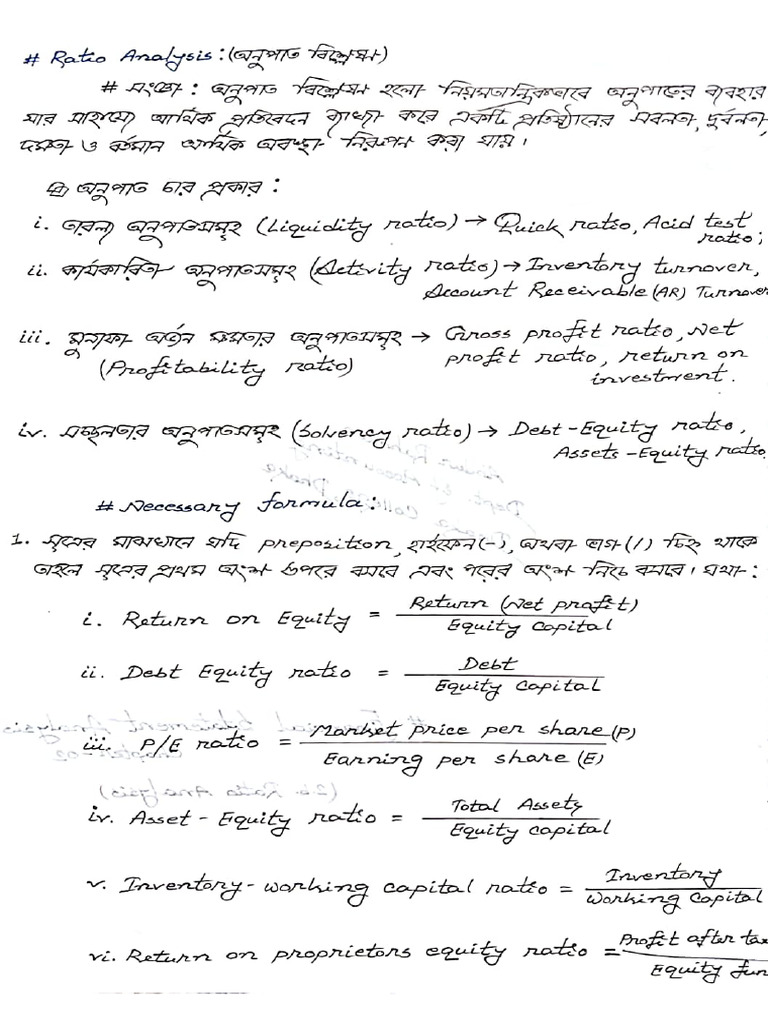 # Ratio Analysis: (অনুপাত বিশ্লেষণ)
# সংজ্ঞা : অনুপাত বিশ্লেষন হলো নিয়মতান্ত্রিকভাবে অনুপাতের ব্যবহার
যার মাধ্যমে আর্থিক প্রতিবেদন ব্যাখ্যা করে একটি প্রতিষ্ঠানের সবলতা, দুর্বলতা,
দক্ষতা ও বর্তমান আর্থিক অবস্থা নিরূপন করা যায়।
অনুপাত চার প্রকার :
i. তারল্য অনুপাতসমূহ (Liquidity ratio) → Quick ratio, Acid test
ratio;
ii. কার্যকারিতা অনুপাতসমূহ (Activity ratio) → Inventory turnover,
Account Receivable (AR) Turnover
iii. মুনাফা অর্জন ক্ষমতার অনুপাতসমূহ → Gross profit ratio, Net
(Profitability ratio) profit ratio, return on
investment.
iv. সচ্ছলতার অনুপাতসমূহ (Solvency ratio) → Debt-Equity ratio,
Assets-Equity ratio
# Necessary formula:
1. সূত্রের মাঝখানে যদি preposition, হাইফেন(-), অথবা ভাগ(/) চিহ্ন থাকে
তাহলে সূত্রের প্রথম অংশ উপরে বসবে এবং পরের অংশ নিচে বসবে। যথা:
i. Return on Equity = Return (Net profit)
Equity Capital
ii. Debt Equity ratio = Debt
Equity Capital
iii. P/E ratio = Market price per share (P)
Earning per share (E)
iv. Asset - Equity ratio = Total Assets
Equity capital
v. Inventory-working capital ratio = Inventory
Working Capital
vi. Return on proprietors equity ratio = Profit after tax
Equity fun